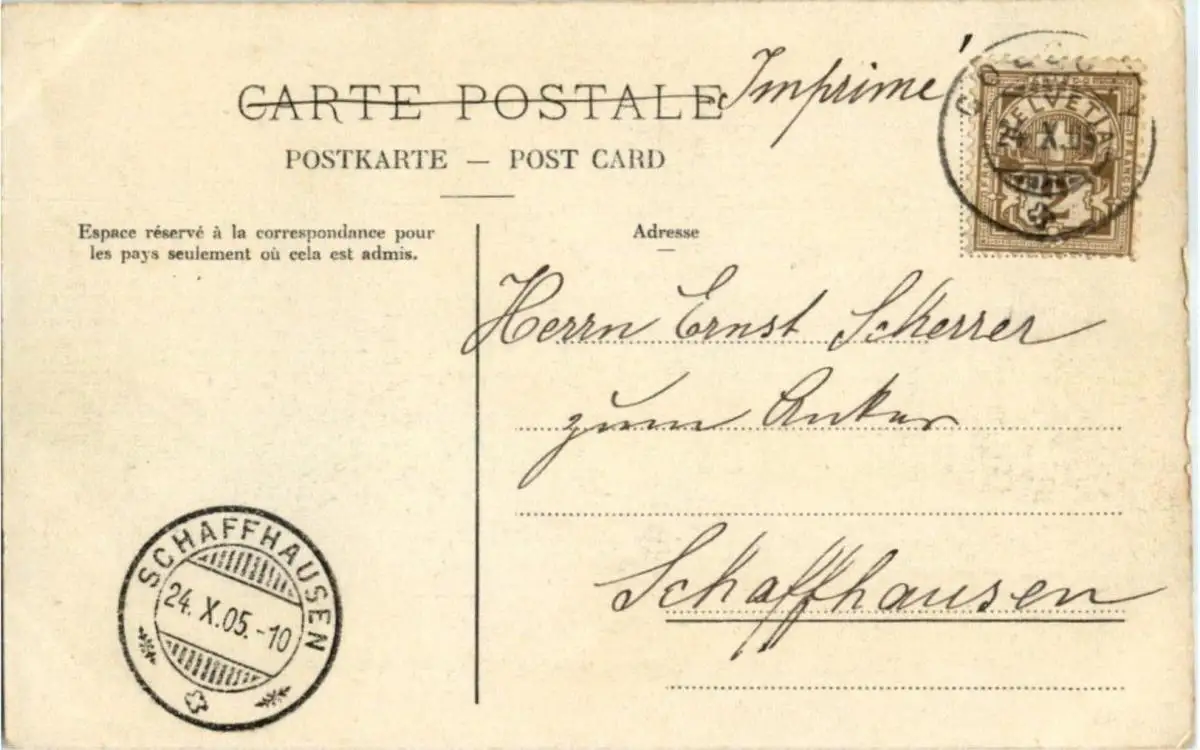 CARTE POSTALE Imprimé
POSTKARTE — POST CARD
Espace réservé à la correspondance pour
les pays seulement où cela est admis.
Adresse
HELVETIA
FRANCO
X.05
2
Herrn Ernst Scherrer
zum Anker
Schaffhausen
SCHAFFHAUSEN
24. X.05.-10